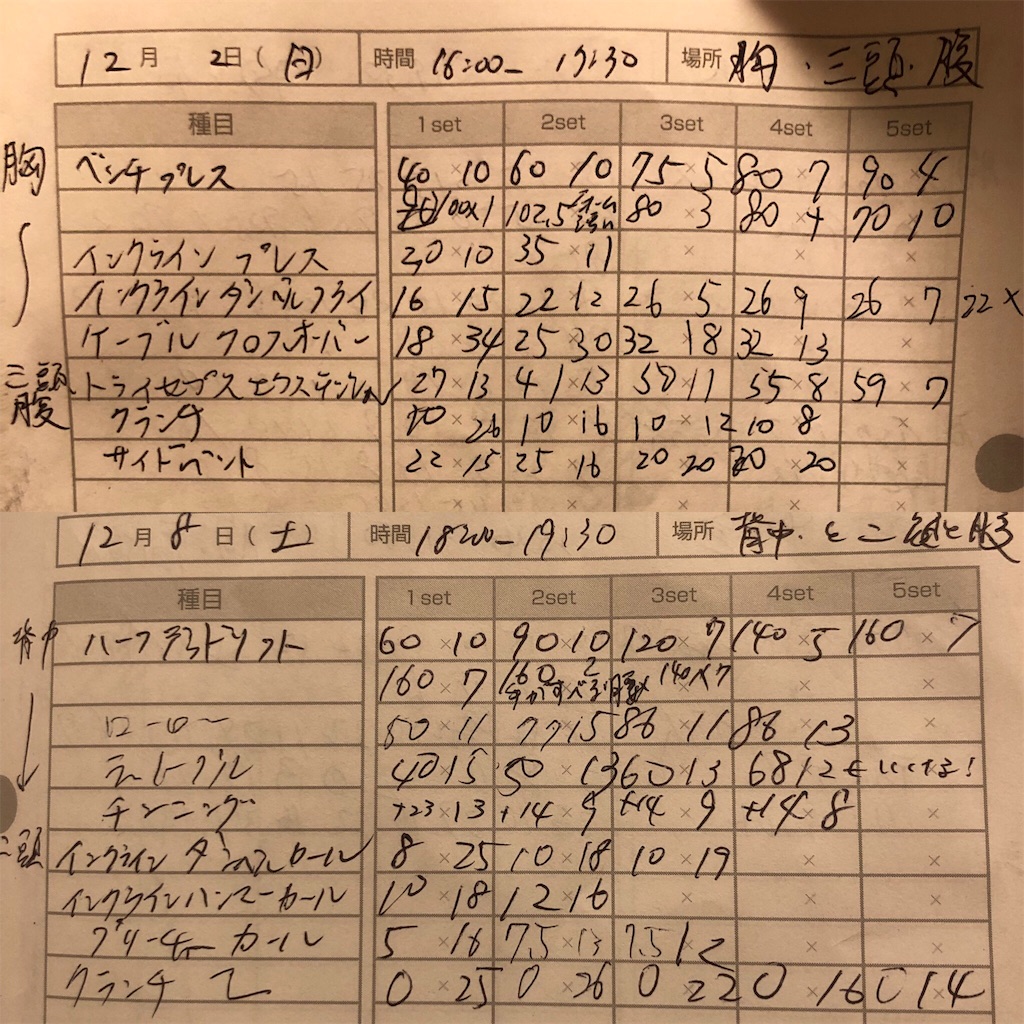 12月 2日(日) 時間 16:00- 17:30 場所 胸・三頭・腹
種目 1set 2set 3set 4set 5set
胸 ベンチプレス 40×10 60×10 75×5 80×7 90×4
100×1 102.5 80×3 80×4 70×10
インクライン プレス 20×10 35×11 × × ×
インクラインダンベルフライ 16×15 22×12 26×5 26×9 26×7 22×
ケーブルクロスオーバー 18×34 25×30 32×18 32×13 ×
三頭 トライセプスエクステンション 27×13 41×13 50×11 55×8 59×7
腹 クランチ 10×26 10×16 10×12 10×8
サイドベント 22×15 25×16 20×20 20×20 ×
× × × × ×
12月 8日(土) 時間 18:00-19:30 場所 背中・と二頭と腹
種目 1set 2set 3set 4set 5set
背中 ハーフデッドリフト 60×10 90×10 120×7 140×5 160×7
160×7 160×2 すべる 140×7 × ×
ローロー 50×11 77×15 86×11 86×13 ×
ラットプル 40×15 50×13 60×13 68×12 もいける!
チンニング +23×13 +14×9 +14×9 +14×8 ×
二頭 インクライン ダンベルカール 8×25 10×18 10×19 × ×
インクラインハンマーカール 10×18 12×16 × × ×
プリーチャーカール 5×16 7.5×13 7.5×12 × ×
クランチ 0×25 0×26 0×22 0×16 0×14